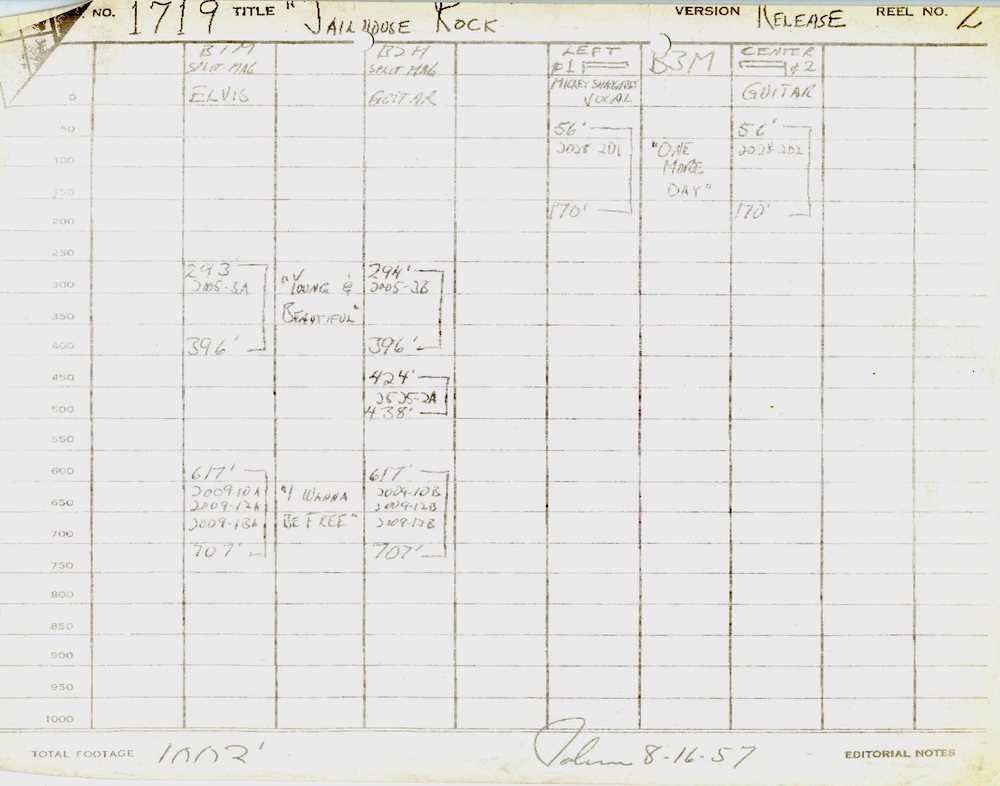 NO. 1719 TITLE "JAILHOUSE ROCK VERSION RELEASE REEL NO. 2
B1M
SPLIT MAG
ELVIS
B2M
SPLIT MAG
GUITAR
LEFT
#1
MICKEY
VOCAL
B3M
CENTER
#2
GUITAR
0
50
100
150
200
250
300
350
400
450
500
550
600
650
700
750
800
850
900
950
1000
56'
2028-2D1
170'
"ONE
MORE
DAY"
56'
2028-2D2
170'
293'
2005-3A
396'
"YOUNG &
BEAUTIFUL"
294'
2005-3B
396'
424'
438'
617'
2009-10A
2009-12A
2009-13A
707'
"I WANNA
BE FREE"
617'
2009-10B
2009-12B
2009-13B
707'
TOTAL FOOTAGE 1002' 8-16-57 EDITORIAL NOTES